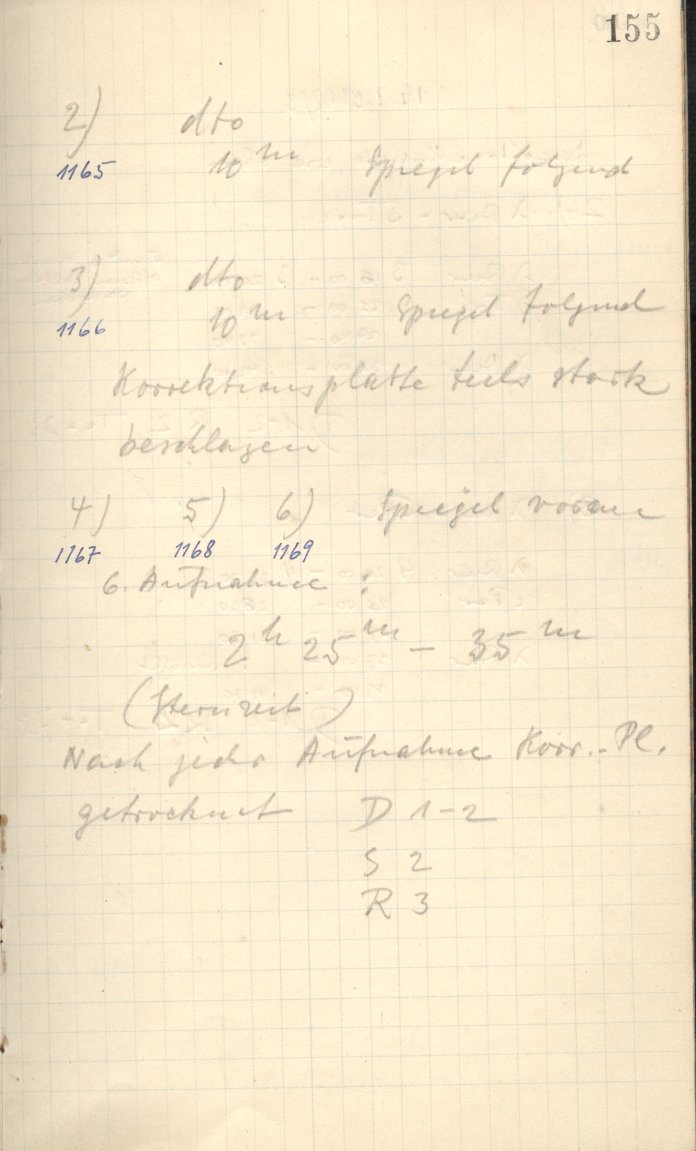 155
2) dto
1165 10ᵐ Spiegel folgend
3) dto
1166 10ᵐ Spiegel folgend
Korrektionsplatte teils stark
beschlagen
4) 5) 6) Spiegel voran
1167 1168 1169
6. Aufnahme :
2ʰ 25ᵐ – 35ᵐ
(Sternzeit)
Nach jeder Aufnahme Korr.-Pl.
getrocknet D 1-2
S 2
R 3